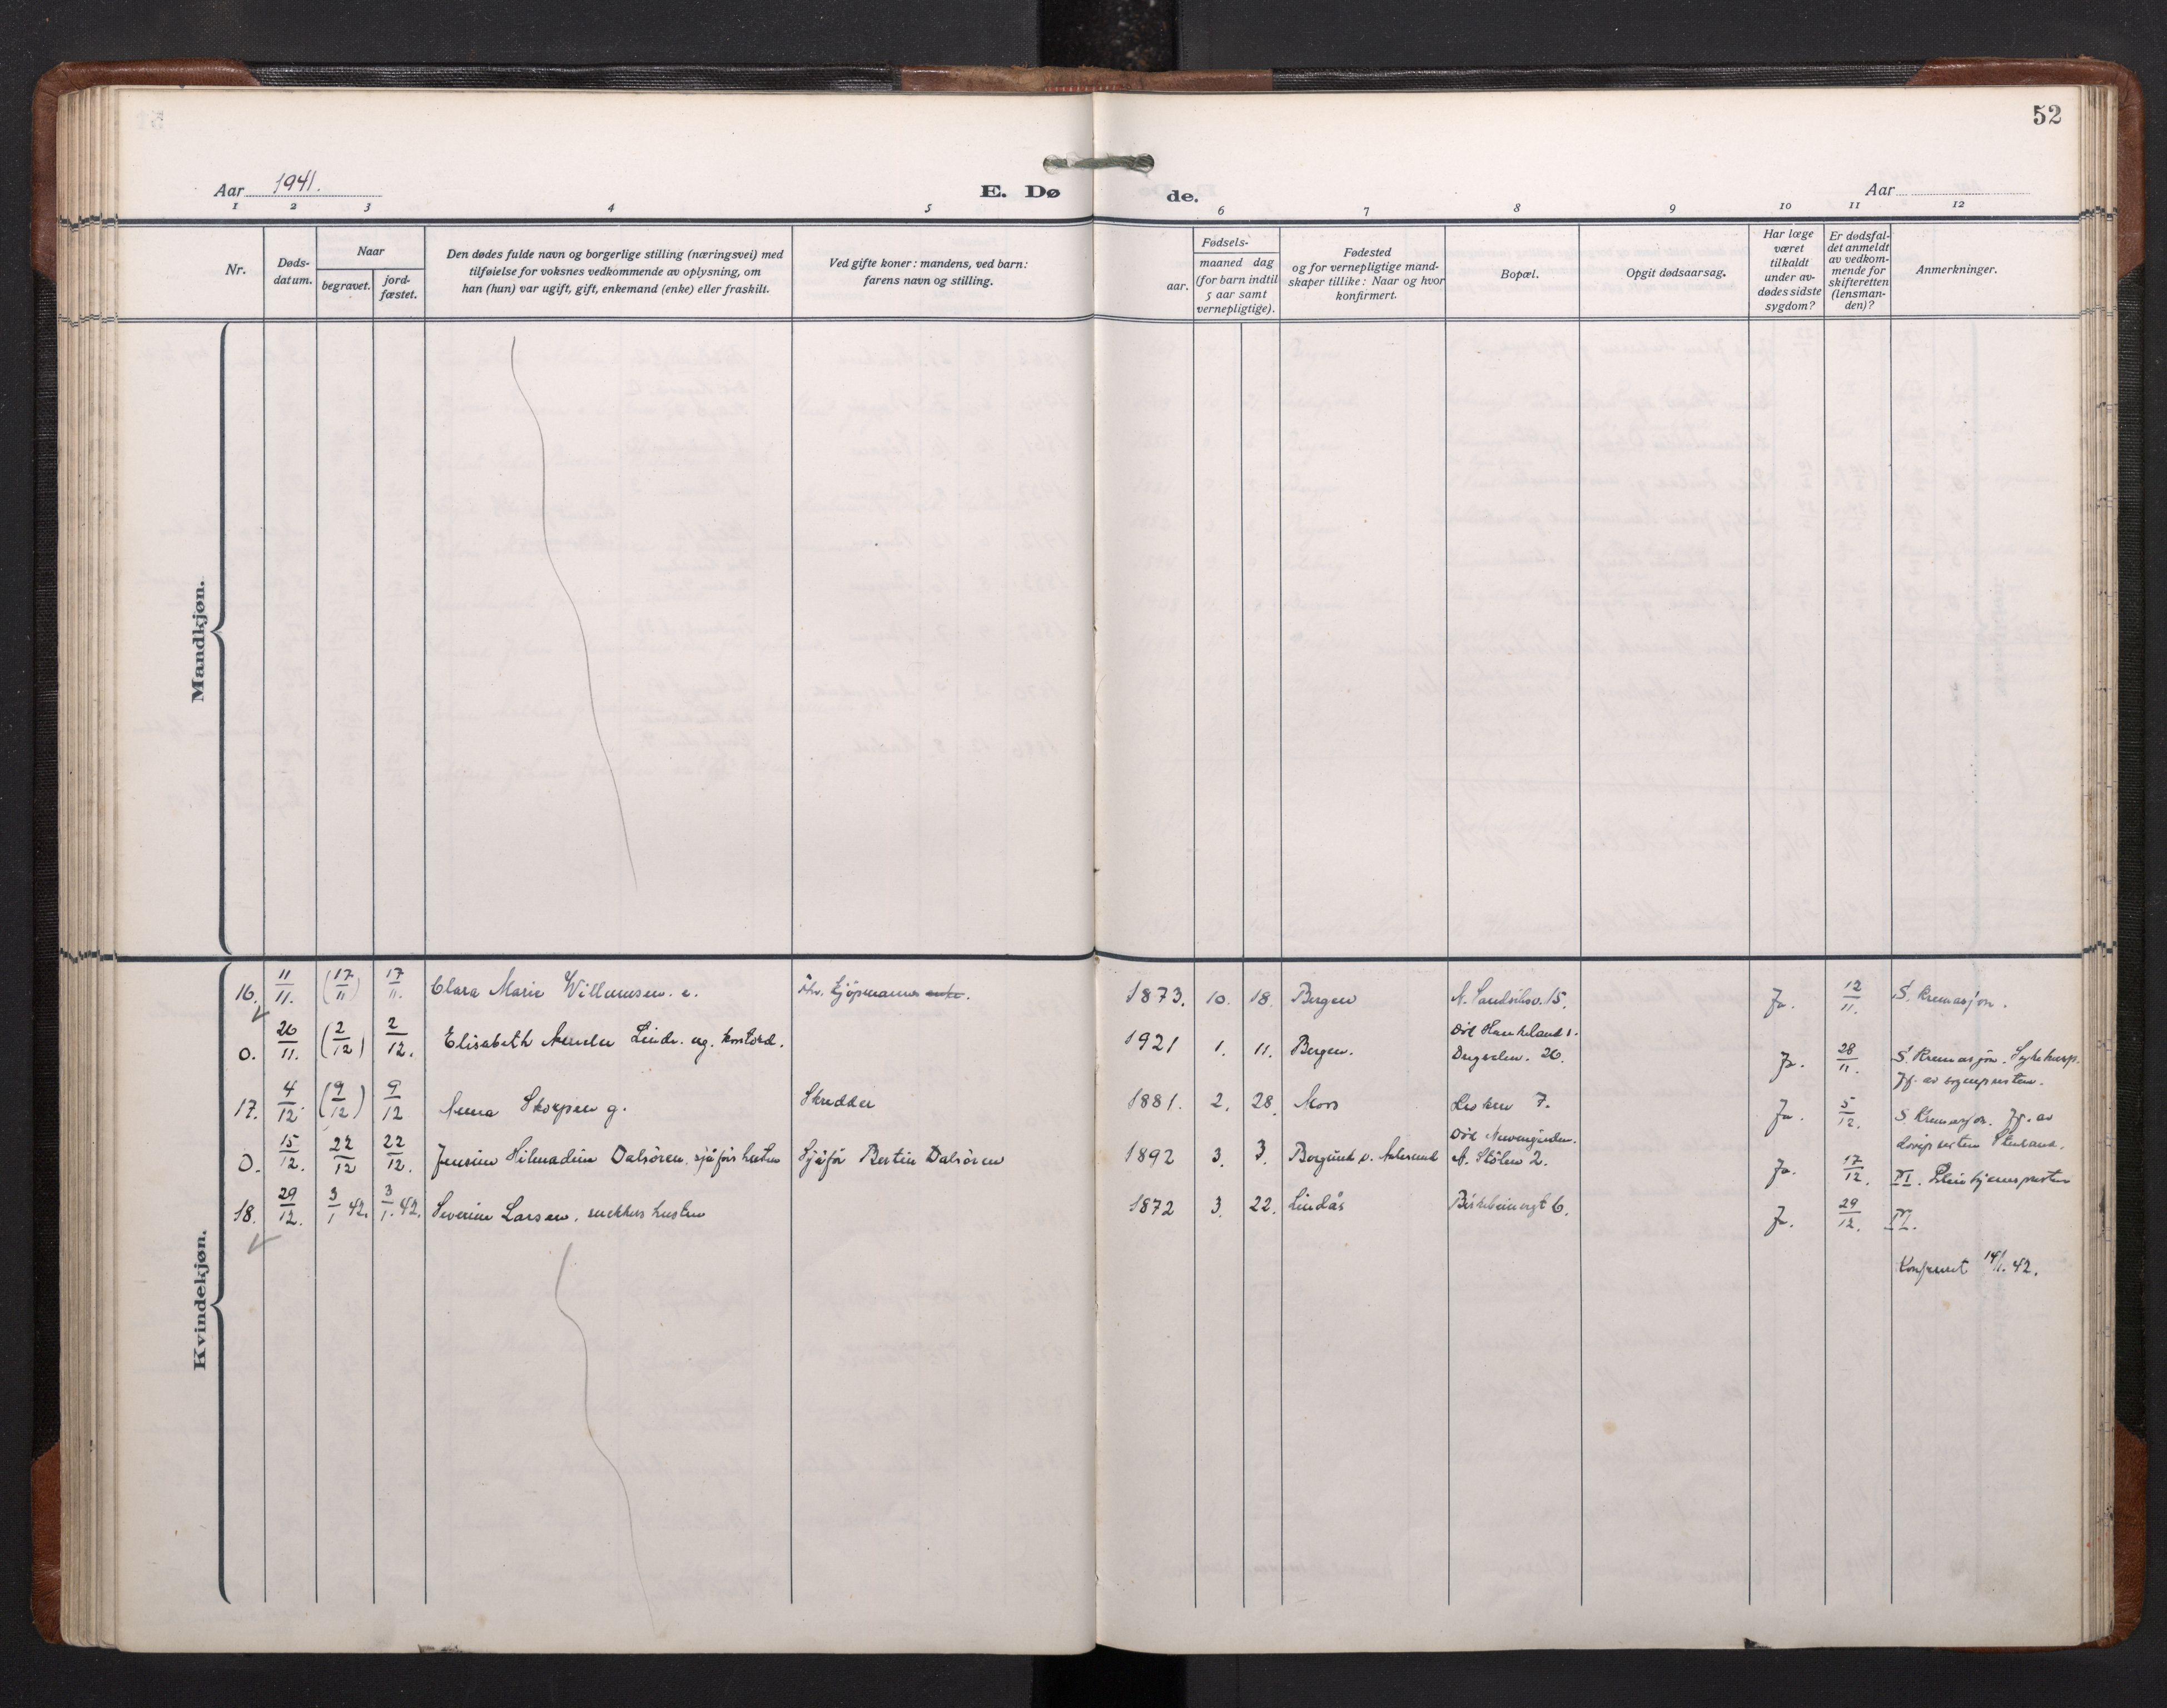 52
Aar 1941.
E. Dø
de.
Aar
1 2 3 4 5 6 7 8 9 10 11 12
Nr.
Døds-
datum.
Naar
begravet.
jord-
fæstet.
Den dødes fulde navn og borgerlige stilling (næringsvei) med
tilføielse for voksnes vedkommende av oplysning, om
han (hun) var ugift, gift, enkemand (enke) eller fraskilt.
Ved gifte koner: mandens, ved barn:
farens navn og stilling.
Fødsels-
aar.
maaned dag
(for barn indtil
5 aar samt
vernepligtige).
Fødested
og for vernepligtige mand-
skaper tillike: Naar og hvor
konfirmert.
Bopæl.
Opgit dødsaarsag.
Har læge
været
tilkaldt
under av-
dødes sidste
sygdom?
Er dødsfal-
det anmeldt
av vedkom-
mende for
skifteretten
(lensman-
den)?
Anmerkninger.
Mandkjøn.
Kvindekjøn.
16. 11/11. (17/11) 17/11. Clara Marie Willumsen. e. kjøpmanns enke. 1873. 10. 18. Bergen 15. Ja. 12/11. S. Kremasjon.
O. 26/11. (2/12) 2/12. Elisabeth Linde. ug. 1921 1. 11. Bergen. Död Haukeland s.
26. Ja. 28/11. S. Kremasjon. Sykehusp.
Jf. av
17. 4/12. (9/12) 9/12 Anna Skorpen g. Skredder 1881. 2. 28. Mors 7. Ja. 5/12. S Kremasjon. Jf. av
O. 15/12. 22/12 22/12. Jensine Hilmadine Dalsören. sjåförs hustru Sjåför Bertin Dalsören 1892 3. 3. Borgund v. Aalesund Död
N. Stölen 2. Ja. 17/12. III.
18. 29/12. 3/1 42. 3/1. 42. Severine Larsen. snekkers hustru 1872 3. 22. Lindås Birkebeinergt 6. Ja. 29/12.
Konferert 14/1. 42.